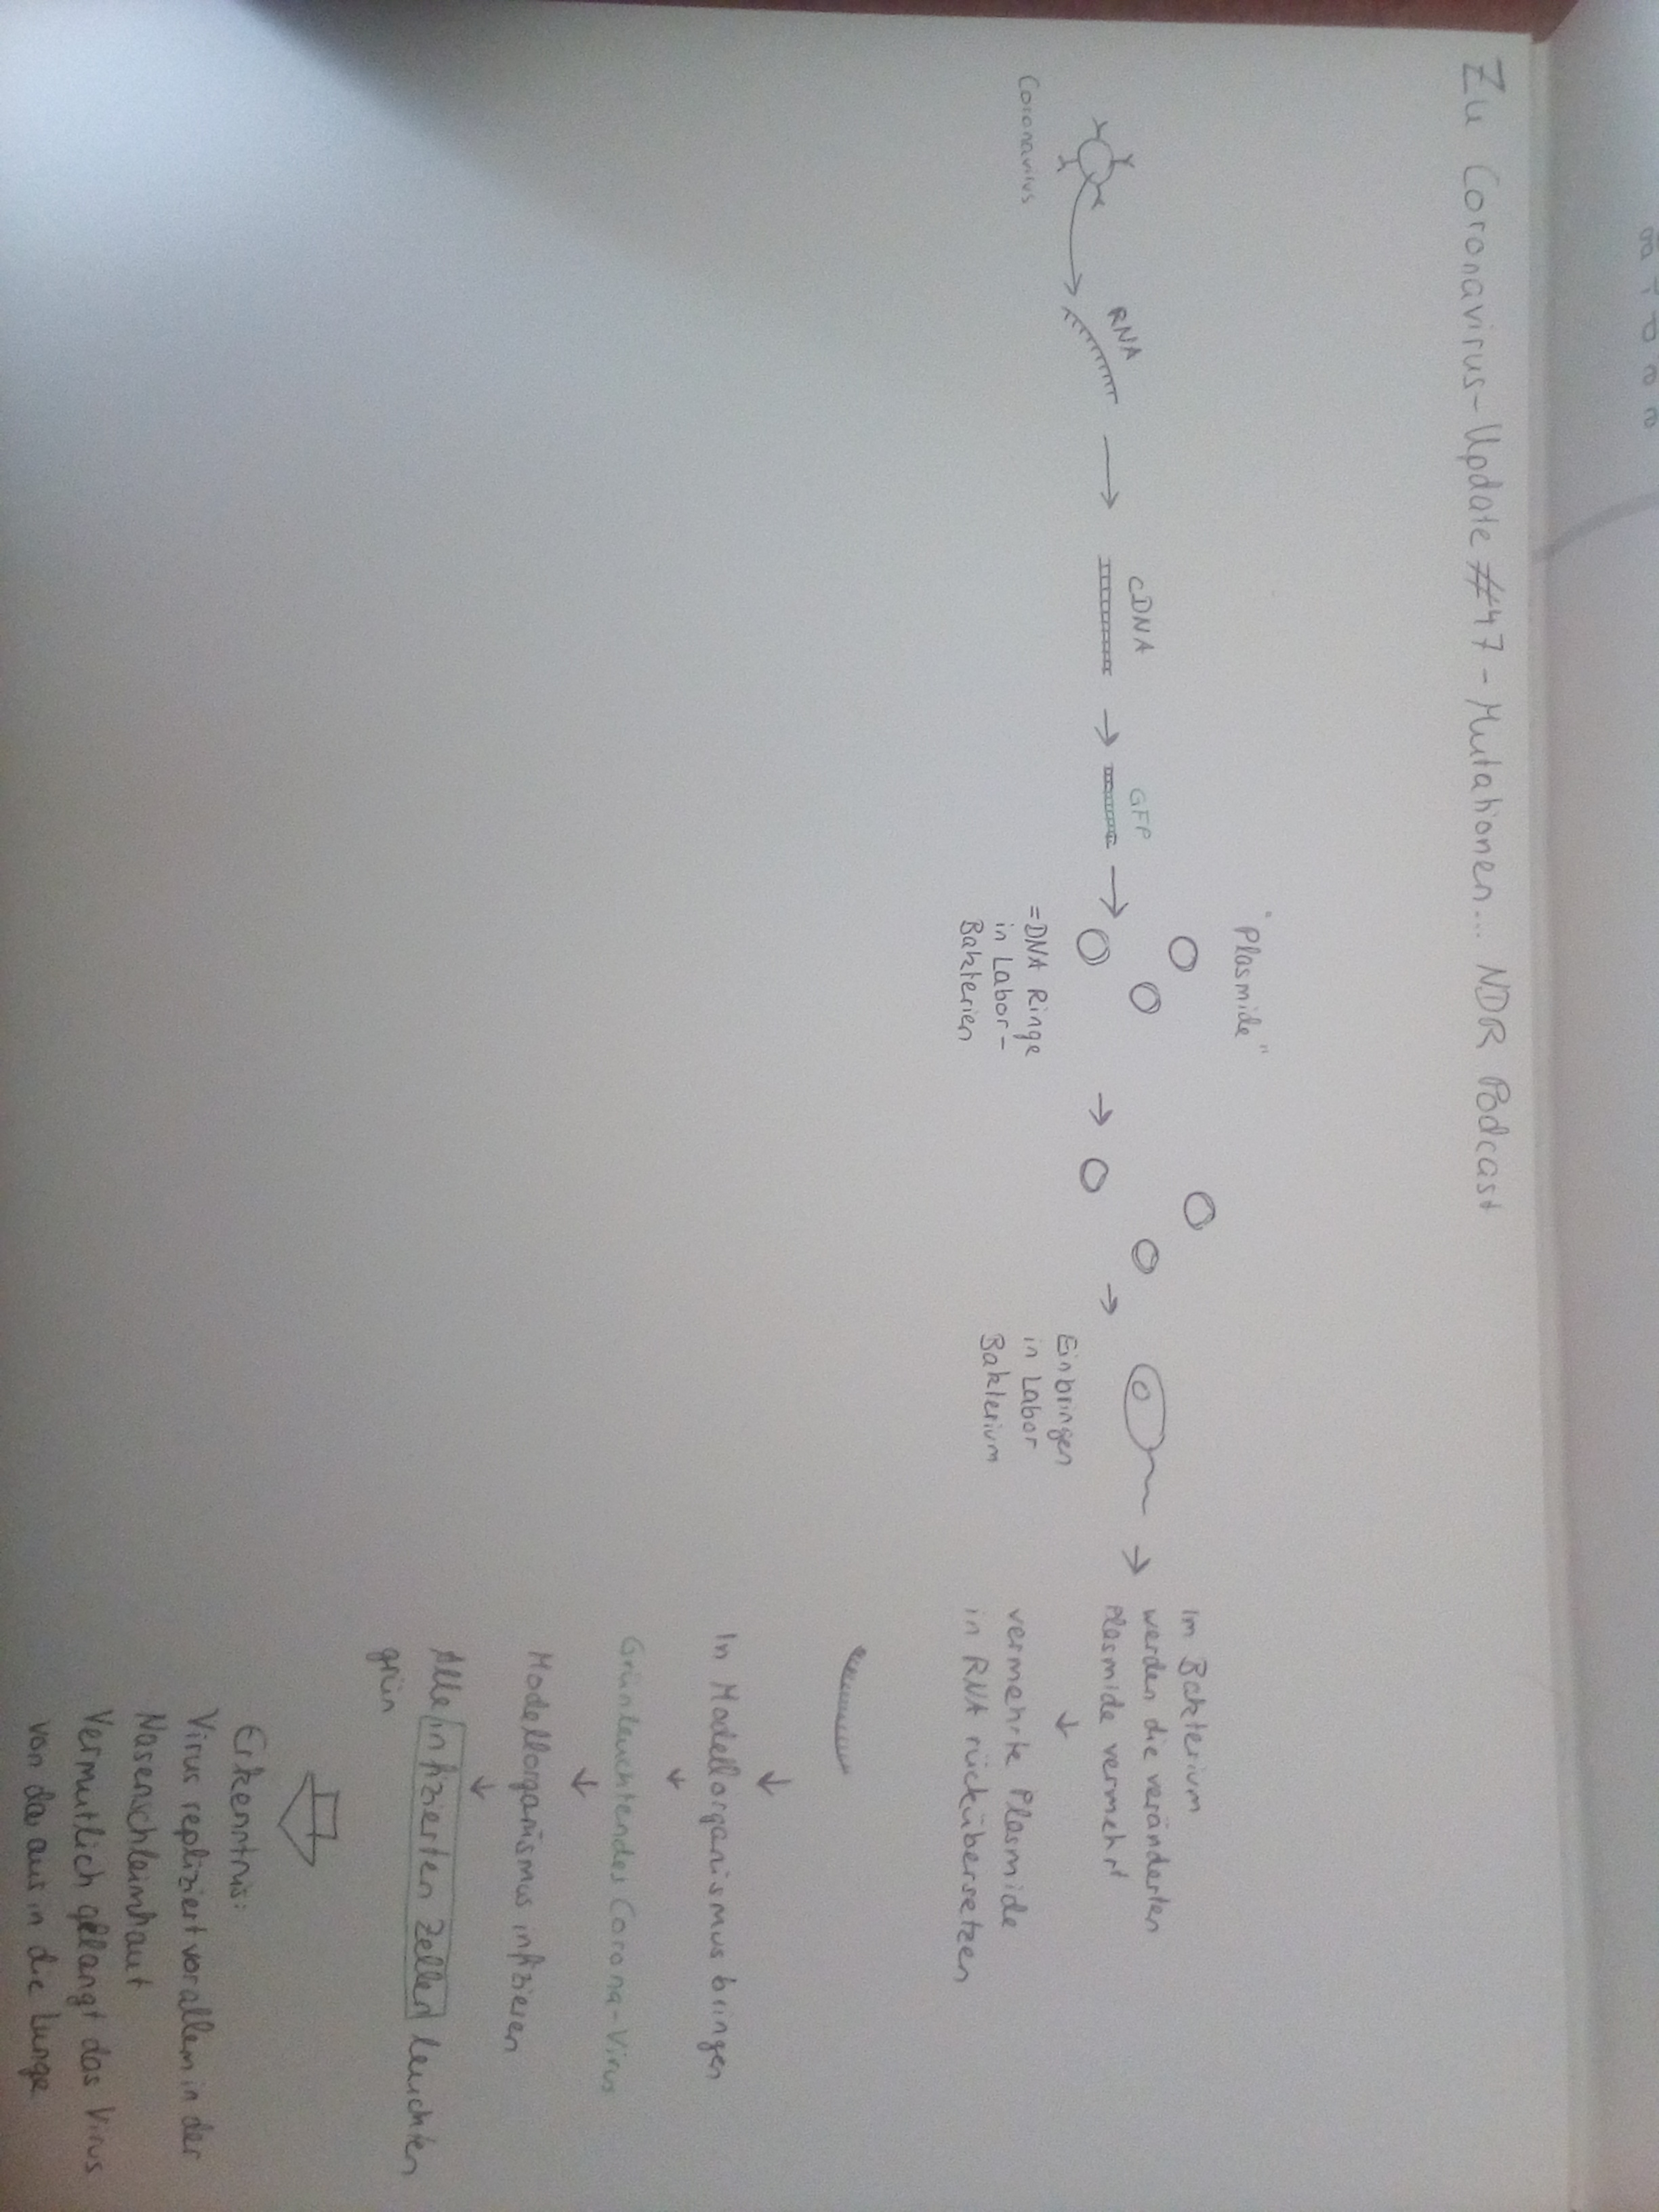 Zu Coronavirus-Update #47 - Mutationen... NDR Podcast
Coronavirus
RNA
cDNA
GFP
"Plasmide"
=DNA Ringe
in Labor-
Bakterien
Einbringen
in Labor
Bakterium
Im Bakterium
werden die veränderten
Plasmide vermehrt
vermehrte Plasmide
in RNA rückübersetzen
In Modellorganismus bringen
Grünleuchtendes Corona-Virus
Modellorganismus infizieren
Alle infizierten Zellen leuchten
grün
Erkenntnis:
Virus repliziert vorallem in der
Nasenschleimhaut
Vermutlich gelangt das Virus
von da aus in die Lunge